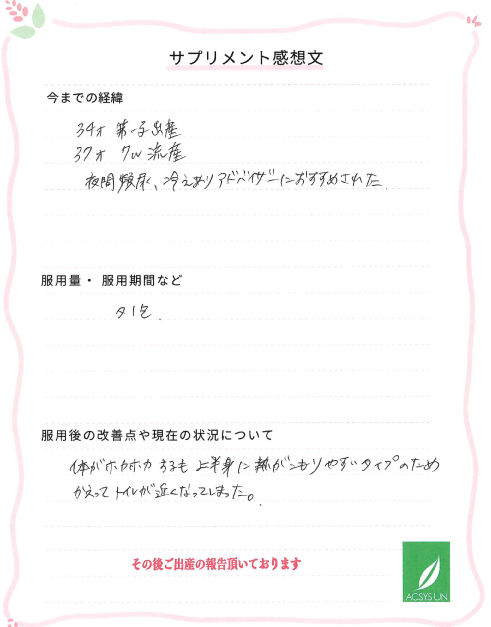 サプリメント感想文
今までの経緯
34才 第一子出産
37才 7w 流産
夜間頻尿、冷えありアドバイザーにおすすめされた
服用量・ 服用期間など
夕1包.
服用後の改善点や現在の状況について
体がホカホカするも上半身に熱がこもりやすいタイプのため
かえってトイレが近くなってしまった。
その後ご出産の報告頂いております
ACSYS UN